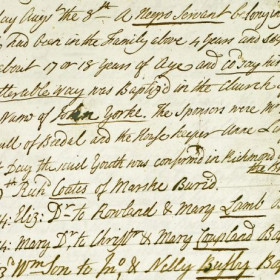 Augst the 8th A Negro Servant belong
had been in the Family above 4 years and
about 17 or 18 years of Age and
Way was Baptiz'd in the Church
Name of John Yorke. The Sponsors were
of Bedel and the House keeper
Day the said Youth was confirmed in Richmond
Richd Coates of Marske Buried
4: Eliz: Dr to Rowland & Mary Lamb
4: Mary Dr to Christr & Mary Coupland Bap
3d Wm Son to Jno & Nelly